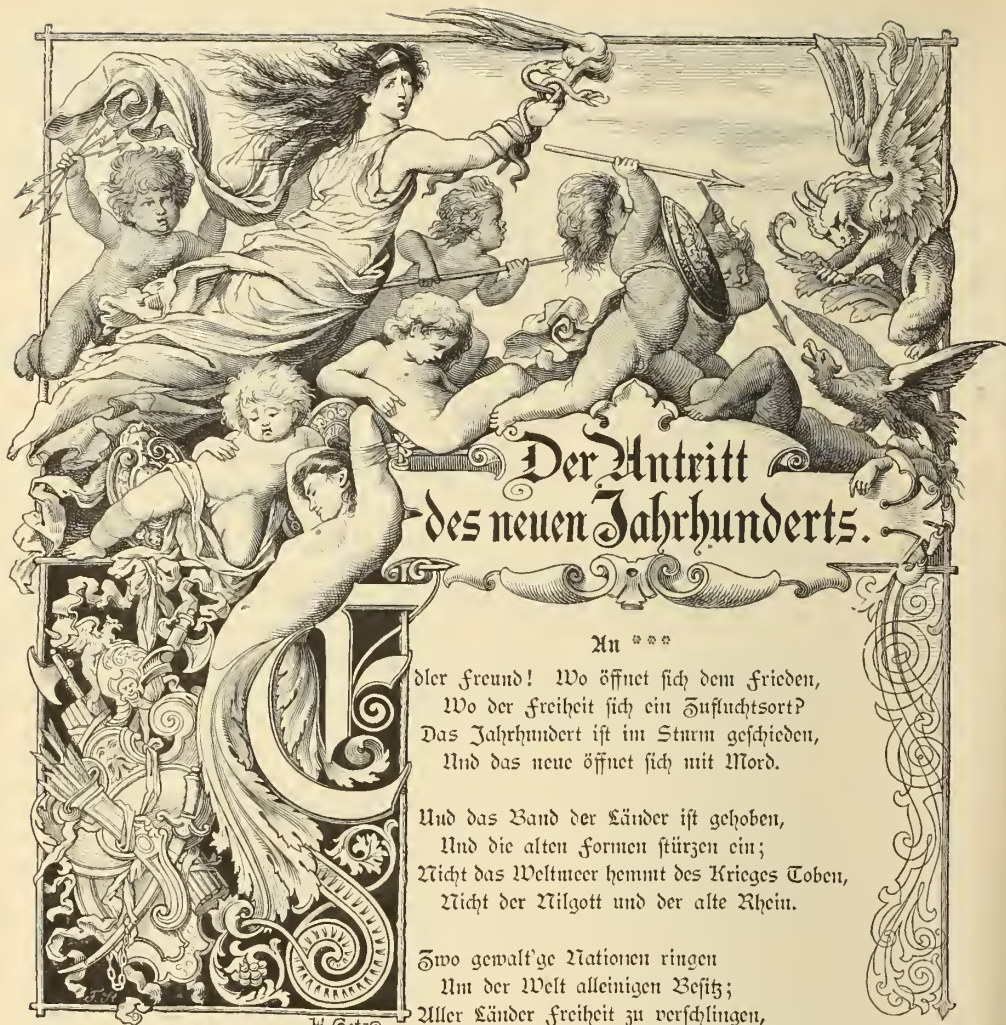 Der Antritt
des neuen Jahrhunderts.
An ***
Edler Freund! Wo öffnet sich dem Frieden,
Wo der Freiheit sich ein Zufluchtsort?
Das Jahrhundert ist im Sturm geschieden,
Und das neue öffnet sich mit Mord.
Und das Band der Länder ist gehoben,
Und die alten Formen stürzen ein;
Nicht das Weltmeer hemmt des Krieges Toben,
Nicht der Nilgott und der alte Rhein.
Zwo gewalt'ge Nationen ringen
Um der Welt alleinigen Besitz;
Aller Länder Freiheit zu verschlingen,